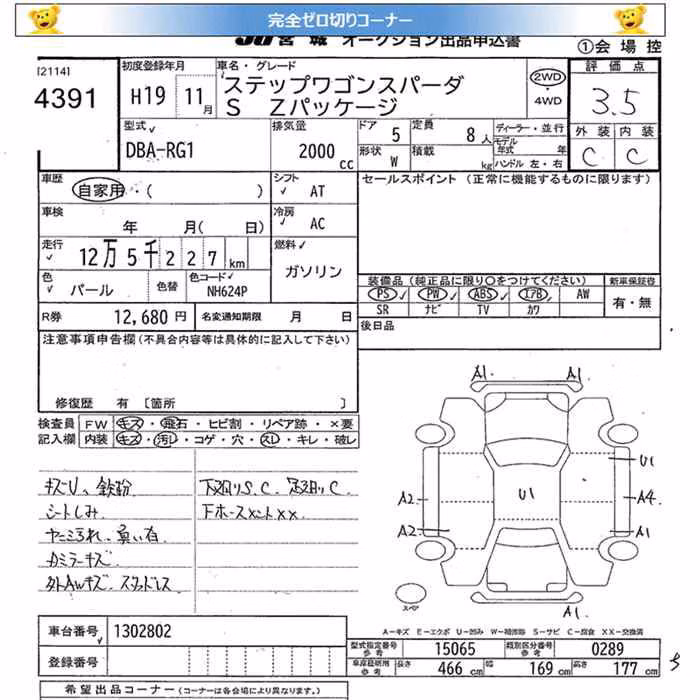 完全ゼロ切りコーナー
JU宮城 オークション出品申込書
①会場控
[2114]
4391
初度登録年月
H19 11月
車名・グレード
ステップワゴンスパーダ
S Zパッケージ
2WD
・
4WD
評価点
3.5
外装 内装
C C
型式
DBA-RG1
排気量
2000 cc
ドア 5
定員 8人
形状 W
積載 kg
ディーラー・並行
モデル年式 年
ハンドル 左・右
車歴
自家用・( )
シフト
AT
セールスポイント (正常に機能するものに限ります)
車検
年 月( 日)
冷房
AC
走行
12万5千227km
燃料
ガソリン
色
パール
色替
色コード
NH624P
装備品(純正品に限り○をつけてください)
新車保証書
PS PW ABS エアB AW
SR ナビ TV カワ
有・無
R券 12,680円
名変通知期限 月 日
後日品
注意事項申告欄(不具合内容等は具体的に記入して下さい)
修復歴 有 〔箇所 〕
検査員記入欄
FW キズ・飛石・ヒビ割・リペア跡・×要
内装 キズ・汚れ・コゲ・穴・スレ・キレ・破レ
キズU、鉄粉
シートしみ
ヤニ汚れ、臭い有
カミラーキズ
外AWキズ、スタッドレス
下廻りS.C. 足廻りC
A1 A1
U1
A2 U1 A4
A2 A1
A1
スペア
A-キズ E-エクボ U-凹み W-補修跡 S-サビ C-腐食 XX-交換済
車台番号 1302802
登録番号
型式指定番号 参考 15065
類別区分番号 参考 0289
車庫証明用 参考 長さ 466cm 幅 169cm 高さ 177cm
希望出品コーナー(コーナーは各会場により異なります。)